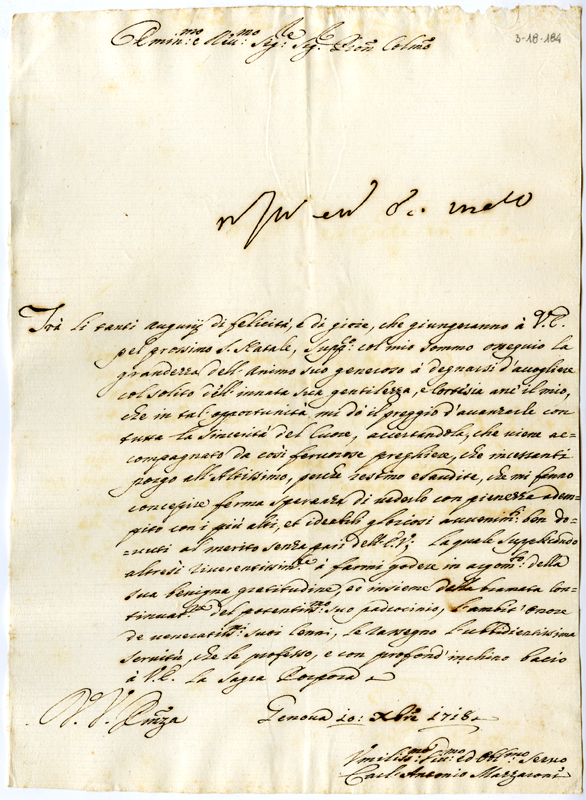 3-18-184
Emin:mo e Rev:mo Sig:r Sig:r Pron Colmo
Trà li tanti augurij di felicità, e di gioie, che giungeranno à V.E.
pel prossimo S. Natale, Supp:o col mio sommo ossequio la
grandezza dell'Animo suo generoso à degnarsi d'accogliere
col solito dell'innata sua gentilezza, e Cortesia anc'il mio,
che in tal'opportunità mi dò il preggio d'avanzarle con
tutta la Sincerità del Cuore, accertandola, che viene ac-
compagnato da così fervorose preghiere, che incessanti
porgo all'Altissimo, perche restino esaudite, che mi fanno
concepire ferma speranza di vederlo con pienezza adem-
pito con i più alti, et ideabili gloriosi avvenim:ti ben do-
-vuti al merito senza pari dell'E.V., La quale Supplicando
altresì riverentissim:te à farmi godere in argom:to della
sua benigna gratitudine, ed insieme della bramata con-
tinuat:ne del potentiss:mo suo padrocinio, l'ambit'onore
de veneratiss:mi suoi Cenni, le rassegno l'ubbidientissima
servitù, che le professo, e con profond'inchino bacio
à V.E. la Sagra Porpora
V. V. Emza
Genova 10: Xbre 1718
Vmiliss:mo Div:mo ed Obl:mo Servo
Carl'Antonio Mazzaconi